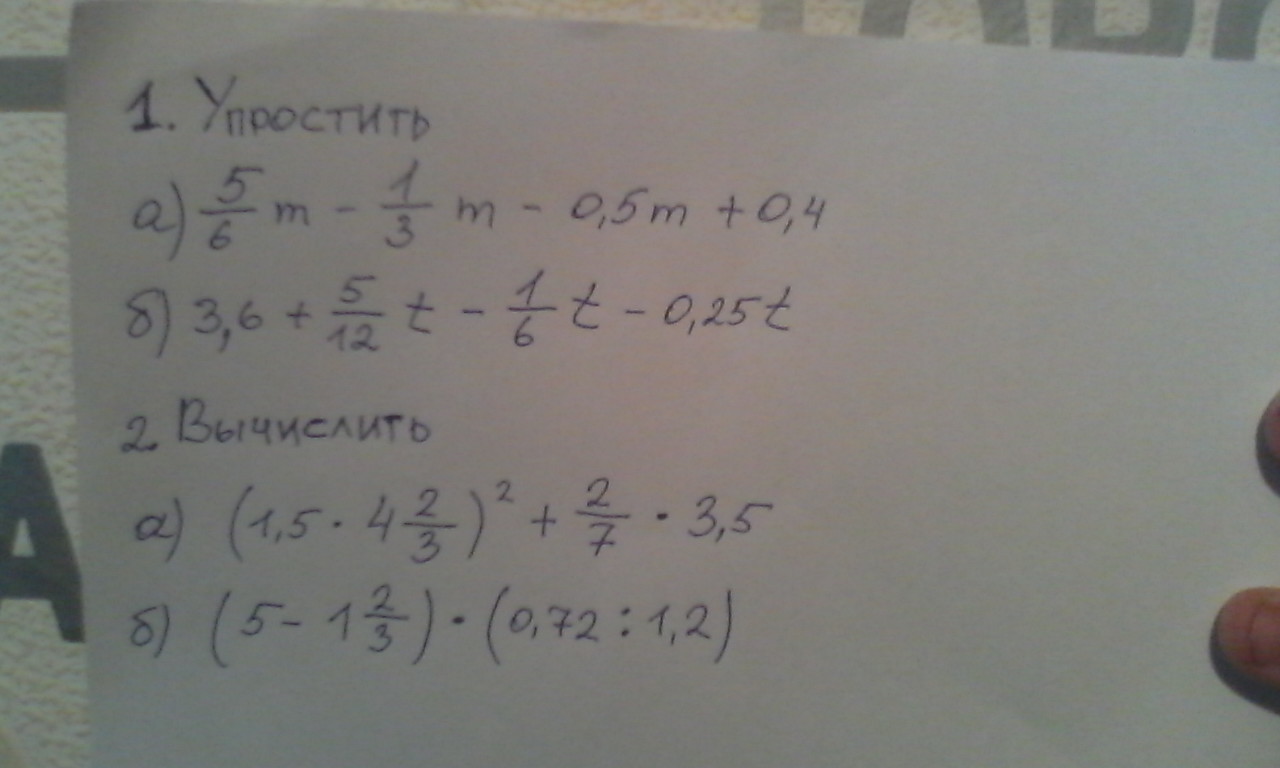 1. Упростить
а) 5/6 m - 1/3 m - 0,5m + 0,4
б) 3,6 + 5/12 t - 1/6 t - 0,25t
2 Вычислить
а) (1,5 · 4 2/3)² + 2/7 · 3,5
б) (5 - 1 2/3) · (0,72 : 1,2)